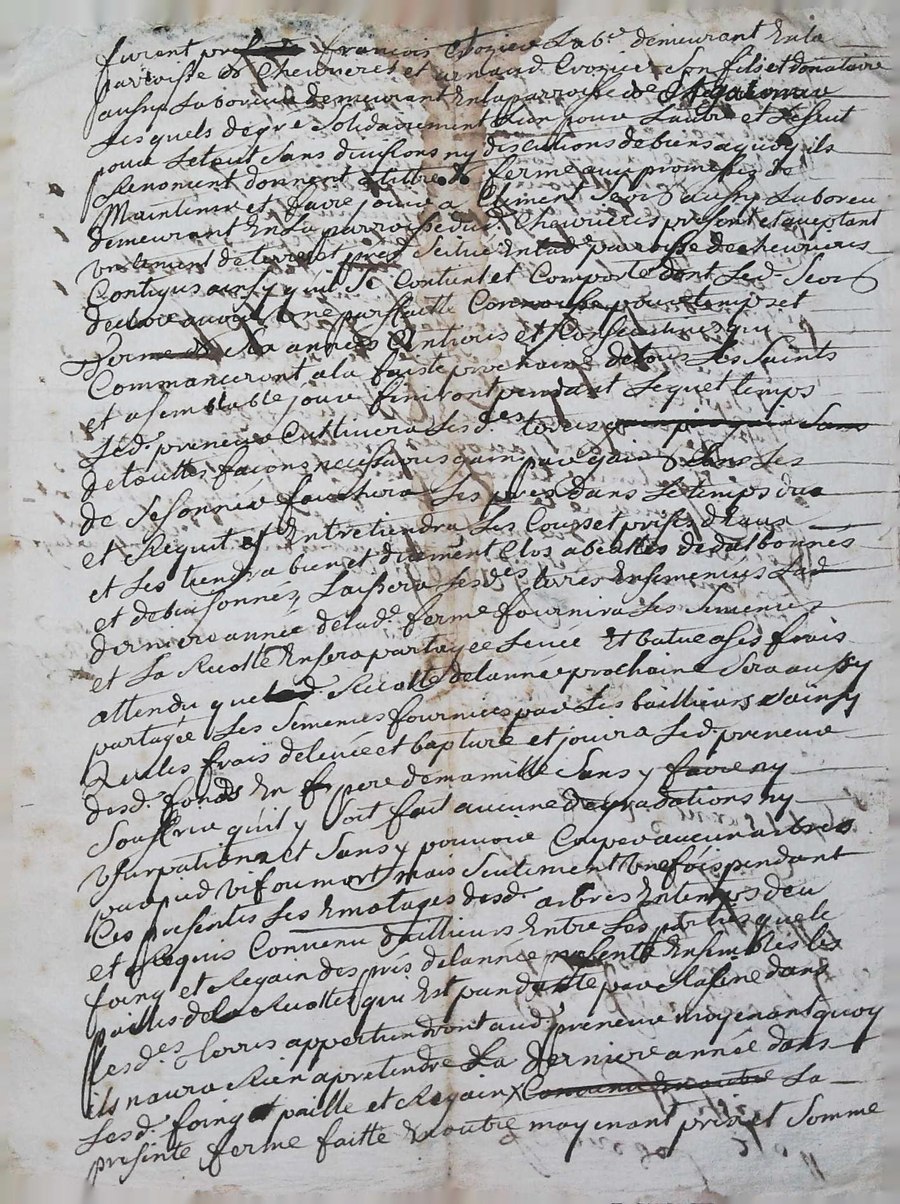 furent pnt françois Crozier Lab.r demeurant En la
parroisse de Cheurieres et arnaud Crozier Son fils et donataire
aussy Laboreur demeurant En la parroisse de St galmier
Lesquels de gré Solidairement L'un pour L'autre et Le Seul
pour Le tout Sans divisions ny discutions de biens a quoy ils
Renoncent donnent a tittre de ferme aux promesses de
Maintenir et faire jouir a Clement aussy Laboreur
demeurant En La parroisse dud. Cheurieres present et aceptant
un tenement de terre et pred Scitué En lad. parroisse de cheurieres
Contigus ainsy qu'il Se Contient et Comporte dont Led.
declare avoir Une parfaitte pour le temps et
Terme de Six années Entieres et Consecutives qui
Commanceront a la faiste prochaine de tous Les Saints
et a Semblable jour finiront pendant Lequel temps
Led. preneur Cultivera Lesd.es terres
de touttes façons necessaires dans Les
de Sesonnée fauchera Les prés dans Le temps du
et Requit et Entretiendra Les Cours et prises d'Eaux
et Les tiendra bien et duement Clos abeuttes de dalbonnes
et de bien Sonnés, Laissera Lesd.es terres Ensemencées Lad
derniere année de lad.e ferme fournira Les Semences
et La Recolte En Sera partagée Levée Et batue a Ses frais
attendu que lad. Recolte de L'année prochaine Sera aussy
partagée Les Semences fournies par Les bailleurs ainsy
Que les frais de levée et bapture et jouira Led. preneur
desd. fonds En pere de famille Sans y faire ny
Souffrir qu'il y Soit fait aucune degradations ny
Usurpations et Sans y pouvoir Couper aucun arbres
par pied vif ou mort mais Seulement Une fois pendant
Ces presentes Les Emotages desd. arbres En temps du
et Requis Convenu d'aillieurs Entre Les parties que le
foing et Regain des prés de l'année presente Ensembles les
pailles de la Recolte qui Est pendante par Rasine dans
Lesd.es terres appartiendront aud. preneur moyenant quoy
ils n'aura Rien a pretendre La derniere année dans
Lesd. foing et paille et Regain Convenu En outre La
presente ferme faitte En outre moyenant prix et Somme